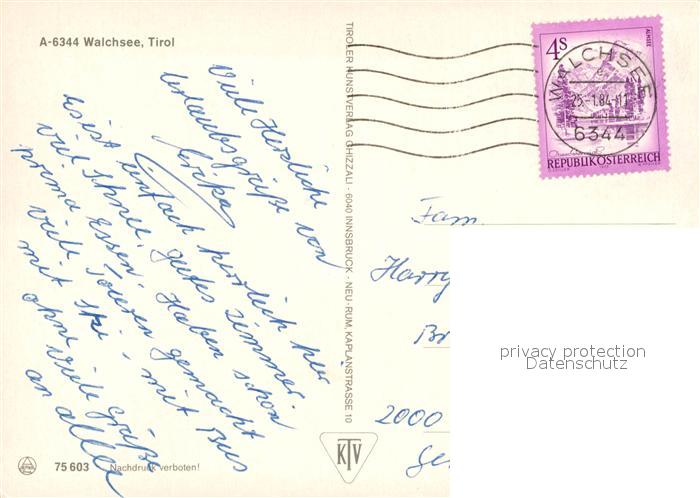 A-6344 Walchsee, Tirol
Viele Herzliche
Urlaubsgrüße von
Erika
es ist einfach herrlich hier
viel Schnee, gutes Zimmer
prima Essen. Haben schon
viele Touren gemacht
mit Ski - mit Bus
ohne viele Grüße
an alle
75 603 Nachdruck verboten!
TIROLER KUNSTVERLAG CHIZZALI - 6040 INNSBRUCK - NEU-RUM, KAPLANSTRASSE 10
KTV
4S
ALMSEE
REPUBLIK ÖSTERREICH
WALCHSEE
25.-1.84-11
6344
Fam.
Harry
Br
2000
Ge
privacy protection
Datenschutz